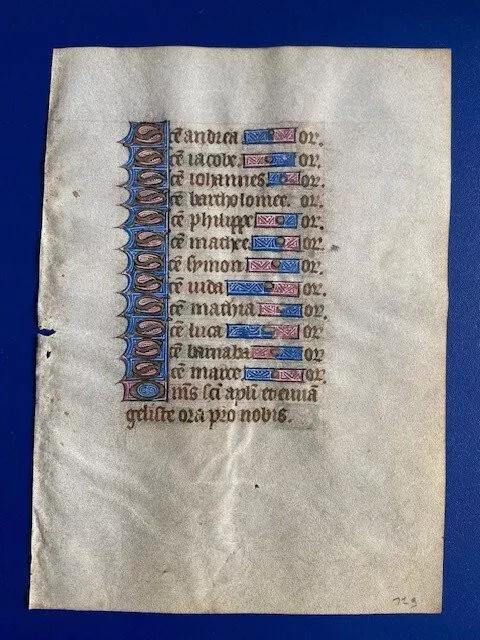 Sce andrea or.
Sce iacobe or.
Sce iohannes or.
Sce bartholomee. or.
Sce philippe or.
Sce mathee or.
Sce symon or.
Sce iuda or.
Sce mathia or.
Sce luca or
Sce barnaba or
Sce marce or.
Oms sci apli euuan
geliste ora pro nobis.